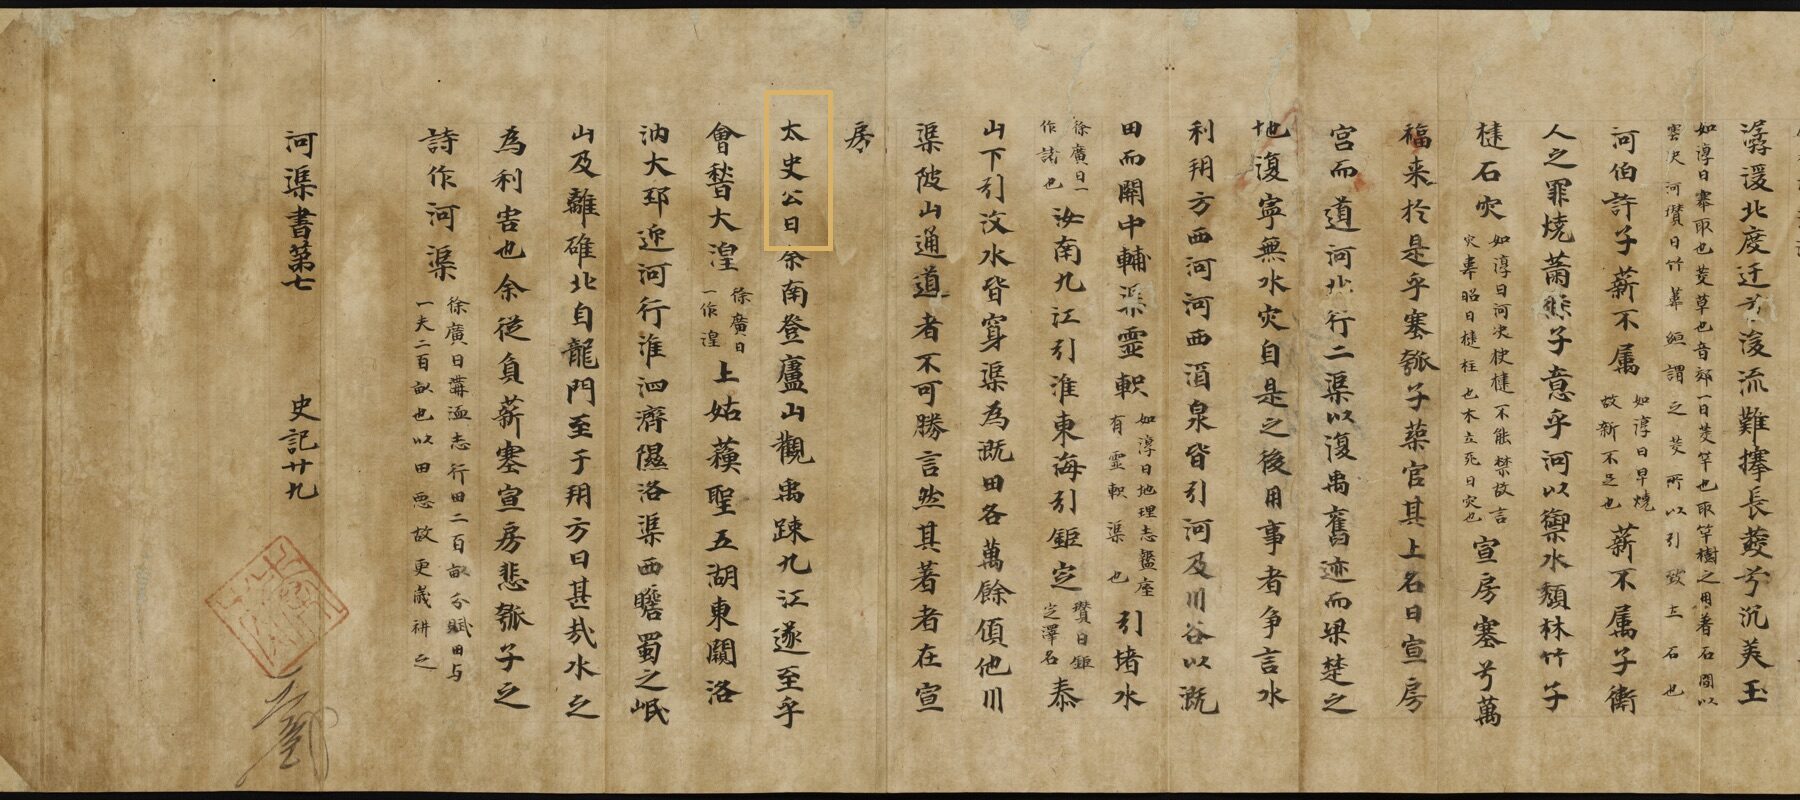 潺湲北度迂兮浚流難搴長茭兮沉美玉
如淳曰搴取也茭草也音郊一曰茭竿也取竿樹之用著石間以
窒決河瓚曰竹葦絙謂之茭所以引致土石也
河伯許兮薪不属如淳曰旱燒故薪不足也薪不属兮衛
人之罪燒蕭條兮意乎河以禦水頹林竹兮
楗石灾如淳曰河決楗不能禁故言灾韋昭曰楗柱也木立死曰灾也宣房塞兮萬
福来於是乎塞瓠子築官其上名曰宣房
宮而道河北行二渠以復禹舊迹而梁楚之
地復寧無水灾自是之後用事者争言水
利朔方西河河西酒泉皆引河及川谷以溉
田而關中輔渠靈軹如淳曰地理志盩厔有靈軹渠也引堵水
徐廣曰一作諸也汝南九江引淮東海引鉅定瓚曰鉅定澤名泰
山下引汶水皆穿渠為溉田各萬餘頃他川
渠陂山通道者不可勝言然其著者在宣
房
太史公曰余南登廬山觀禹疎九江遂至乎
會嵇大湟徐廣曰一作湿上姑蘓望五湖東闚洛
汭大邳迎河行淮泗濟漯洛渠西瞻蜀之岷
山及離碓北自龍門至于朔方曰甚哉水之
為利害也余從負薪塞宣房悲瓠子之
詩作河渠徐廣曰溝洫志行田二百畝分賦田与一夫二百畝也以田惡故更歳耕之
河渠書第七 史記廿九